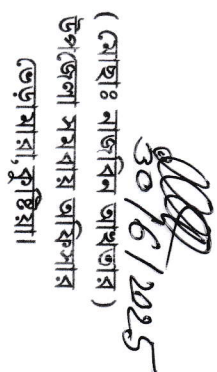 30/6/2025
(মোছাঃ নাজনিন আখতার)
উপজেলা সমবায় অফিসার
ভেড়ামারা, কুষ্টিয়া।